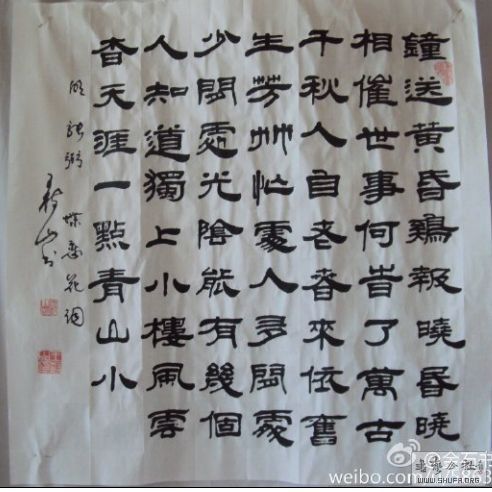 鐘送黃昏鷄報曉昏曉
相催世事何旹了萬古
千秋人自老春來依舊
生芳艸忙處人多閒處
少閒處光陰能有幾個
人知道獨上小樓風雲
杳天涯一點青山小
明張弼蝶戀花詞
weibo.com/
WWW.SHUFA.ORG